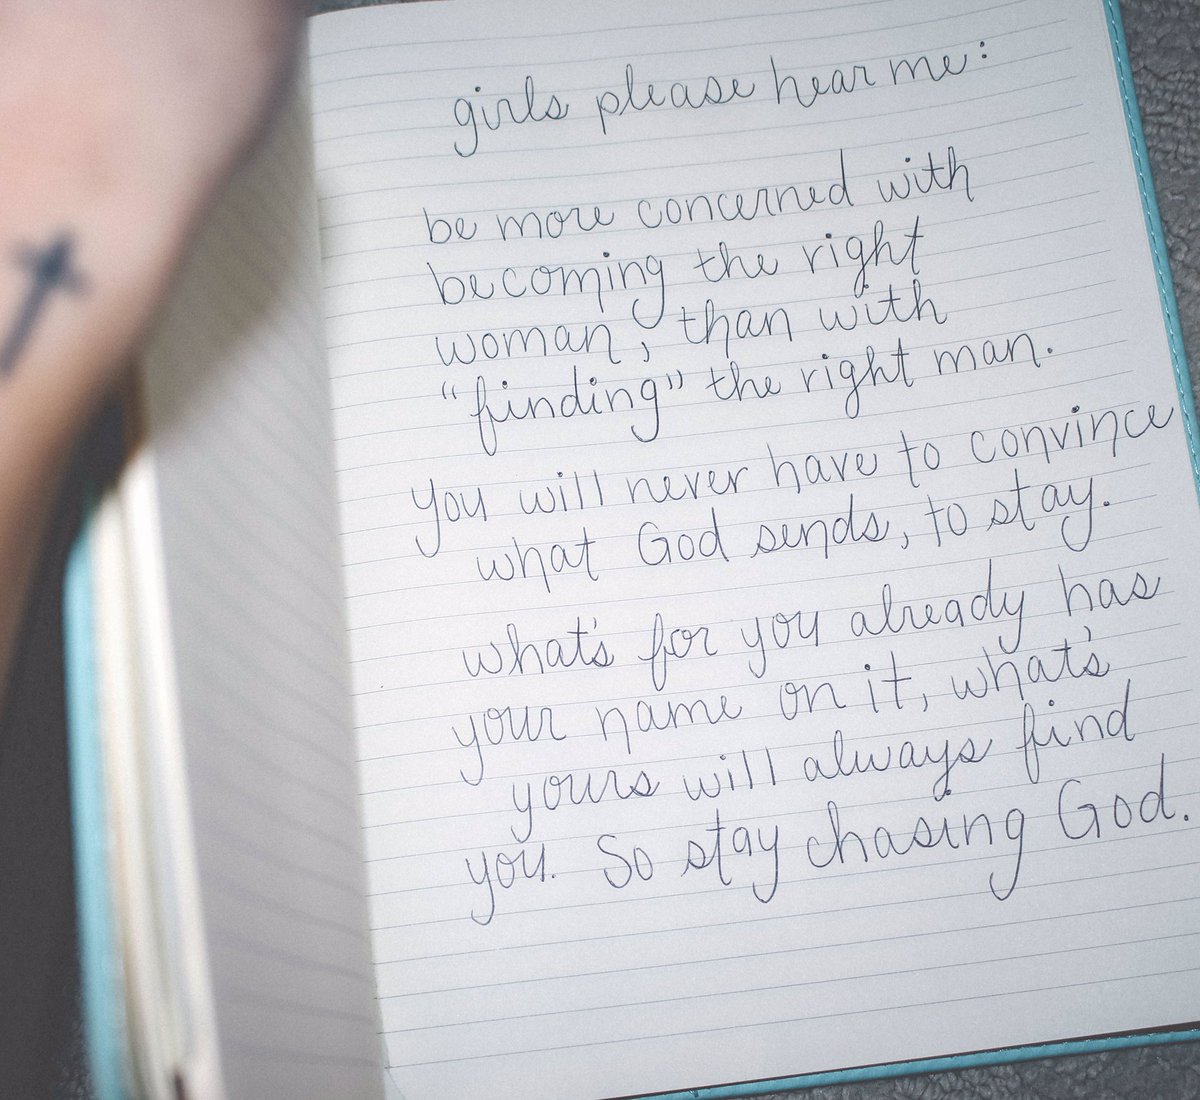 girls please hear me:
be more concerned with
becoming the right
woman, than with
"finding" the right man.
you will never have to convince
what God sends, to stay.
what's for you already has
your name on it, what's
yours will always find
you. So stay chasing God.